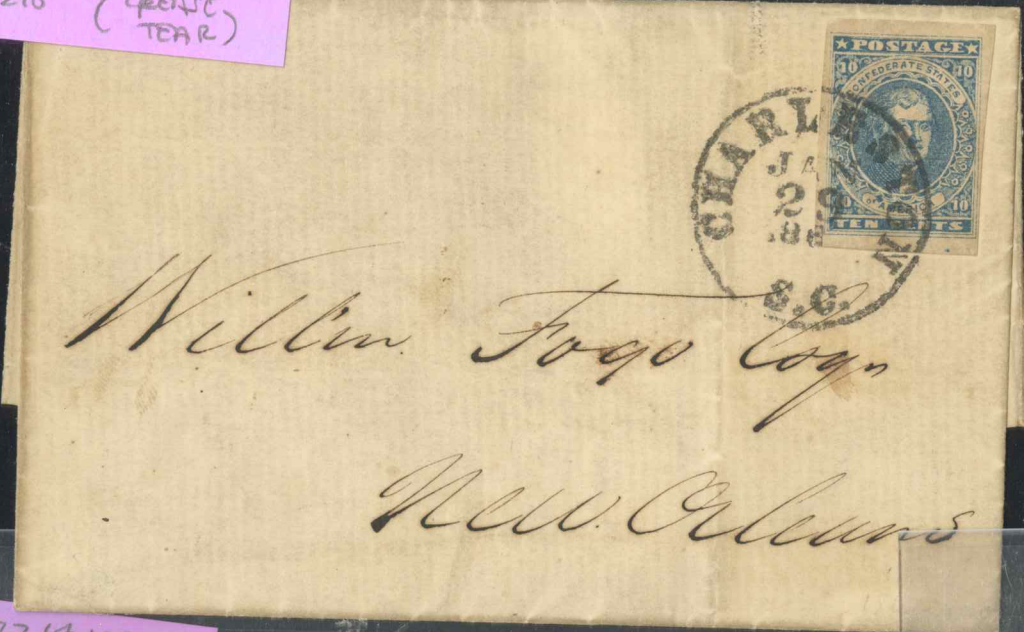 TEAR)
★POSTAGE★
10 10
CONFEDERATE STATES
10 10
TEN CENTS
CHARLESTON
JAN
29
S.C.
Willm Fogo Esqr
New Orleans